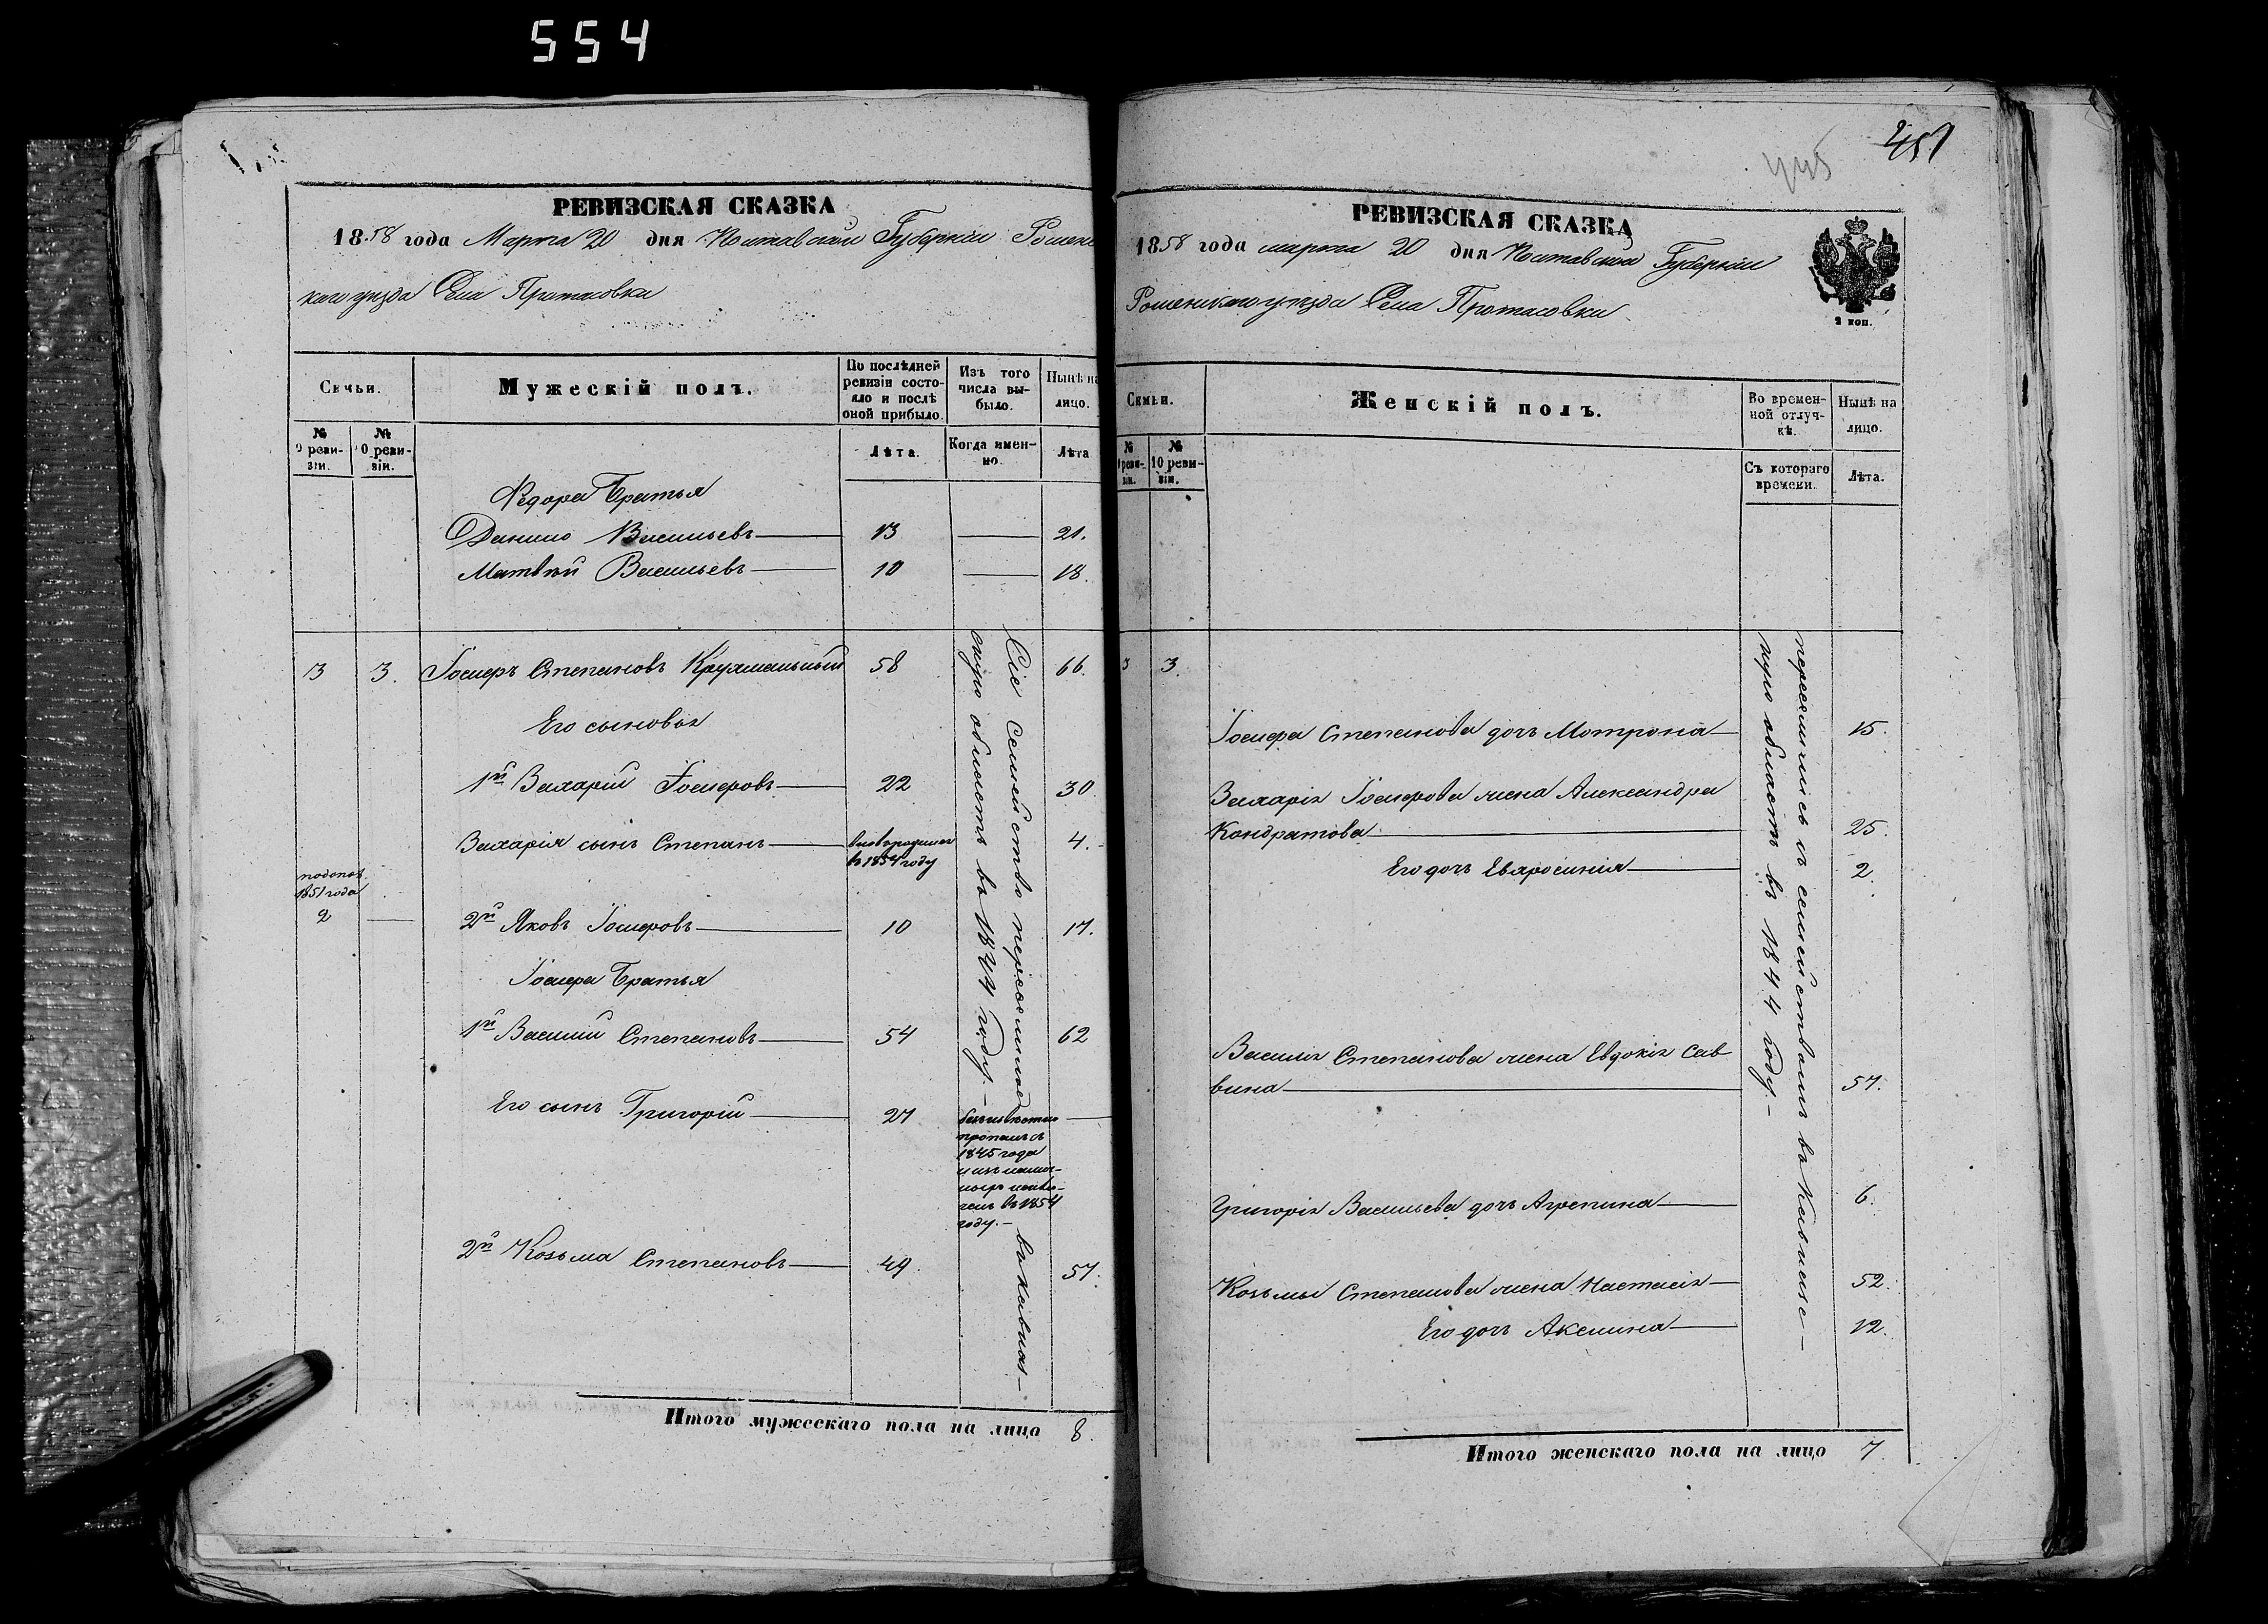 554
РЕВИЗСКАЯ СКАЗКА
1858 года Марта 20 дня Полтавской Губерніи Роменс
каго уезда Села Протасовки
Семьи.
Мужескій полъ.
По послѣдней ревизіи состояло и послѣ оной прибыло.
Изъ того числа выбыло.
Нынѣ на лицо.
№ 9 ревизіи.
№ 10 ревизіи.
Лѣта.
Когда именно.
Лѣта
Федора Братья
Данило Васильевъ 13 21.
Матвѣй Васильевъ 10 18.
3 3. Іосифъ Степановъ 58 66.
Его сыновья
1й Захарій Іосифовъ 22 30.
Захарія сынъ Степанъ вновьродился 4.
в 1854 году
1851 года
2
2й Яковъ Іосифовъ 10 17.
Іосифа Братья
1й Василій Степановъ 54 62
Его сынъ Григорій 27
безъизвѣстно
пропалъ съ
1845 года
въ 1854
году.
2й Козьма Степановъ 49. 57.
Сіе Семейство переселилось в Кавказ-
скую область въ 1844 году.
Итого мужескаго пола на лицо 8.
445
451
РЕВИЗСКАЯ СКАЗКА
1858 года марта 20 дня Полтавской Губерніи
Роменскаго уѣзда Села Протасовки
2 коп.
Семьи.
Женскій полъ.
Во временной отлучкѣ.
Нынѣ на лицо.
№ 9 ревизіи.
№ 10 ревизіи.
Съ котораго времени.
Лѣта.
3 3.
Іосифа Степанова дочь Мотрона 15.
Захарія Іосифова жена Александра
Кондратова 25.
Его дочь Евфросинія 2.
Василія Степанова жена Евдокія Сав
вина 57.
Григорія Васильева дочь Агрепина 6.
Козьмы Степанова жена Настасія 52.
Его дочь Аксинія 12.
переселились съ семействомъ въ Кавказс-
кую область въ 1844 году.
Итого женскаго пола на лицо 7